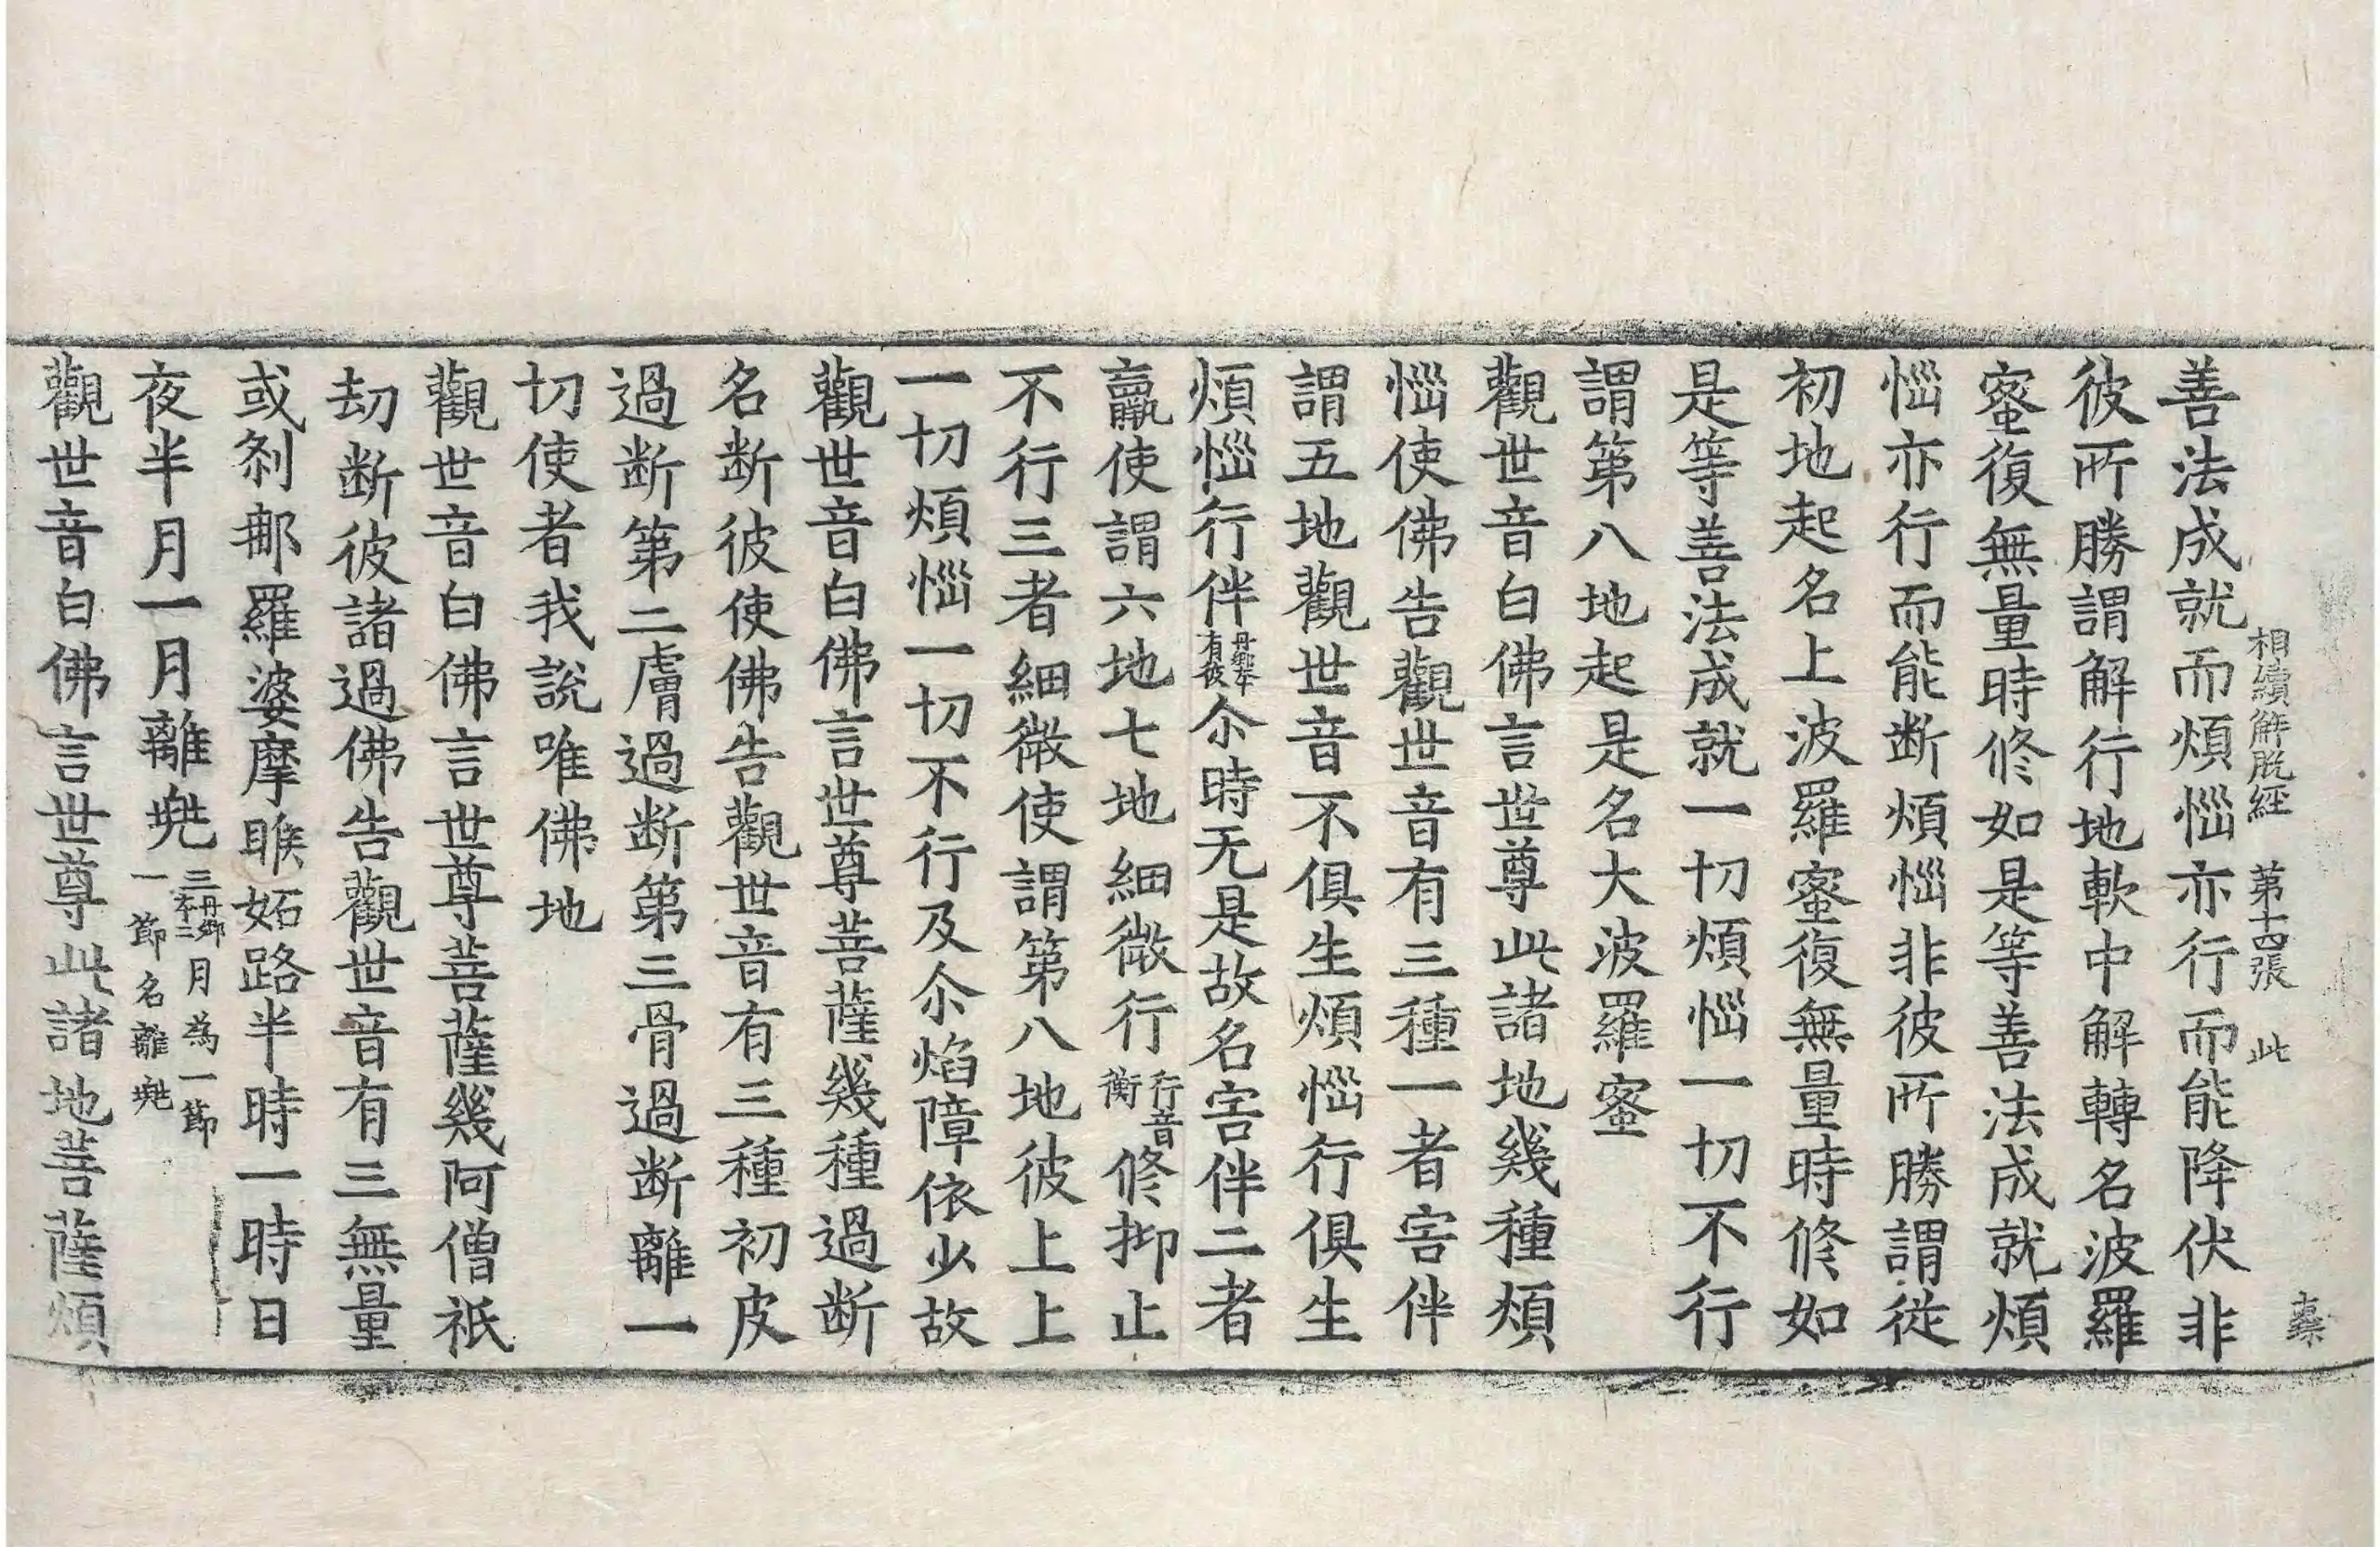 相續解脫經 第十四張 此
善法成就而煩惱亦行而能降伏非
彼所勝謂解行地軟中解轉名波羅
蜜復無量時修如是等善法成就煩
惱亦行而能断煩惱非彼所勝謂從
初地起名上波羅蜜復無量時修如
是等善法成就一切煩惱一切不行
謂第八地起是名大波羅蜜
觀世音白佛言世尊此諸地幾種煩
惱使佛告觀世音有三種一者害伴
謂五地觀世音不俱生煩惱行俱生
煩惱行伴丹鄉本有彼尒時无是故名害伴二者
羸使謂六地七地細微行行音衡修抑止
不行三者細微使謂第八地彼上上
一切煩惱一切不行及尒焰障依少故
觀世音白佛言世尊菩薩幾種過断
名断彼使佛告觀世音有三種初皮
過断第二膚過断第三骨過断離一
切使者我說唯佛地
觀世音白佛言世尊菩薩幾阿僧祇
劫断彼諸過佛告觀世音有三無量
或剎那羅婆摩睺妬路半時一時日
夜半月一月離兠三丹鄉本二月為一節一節名離兠
觀世音白佛言世尊此諸地菩薩煩